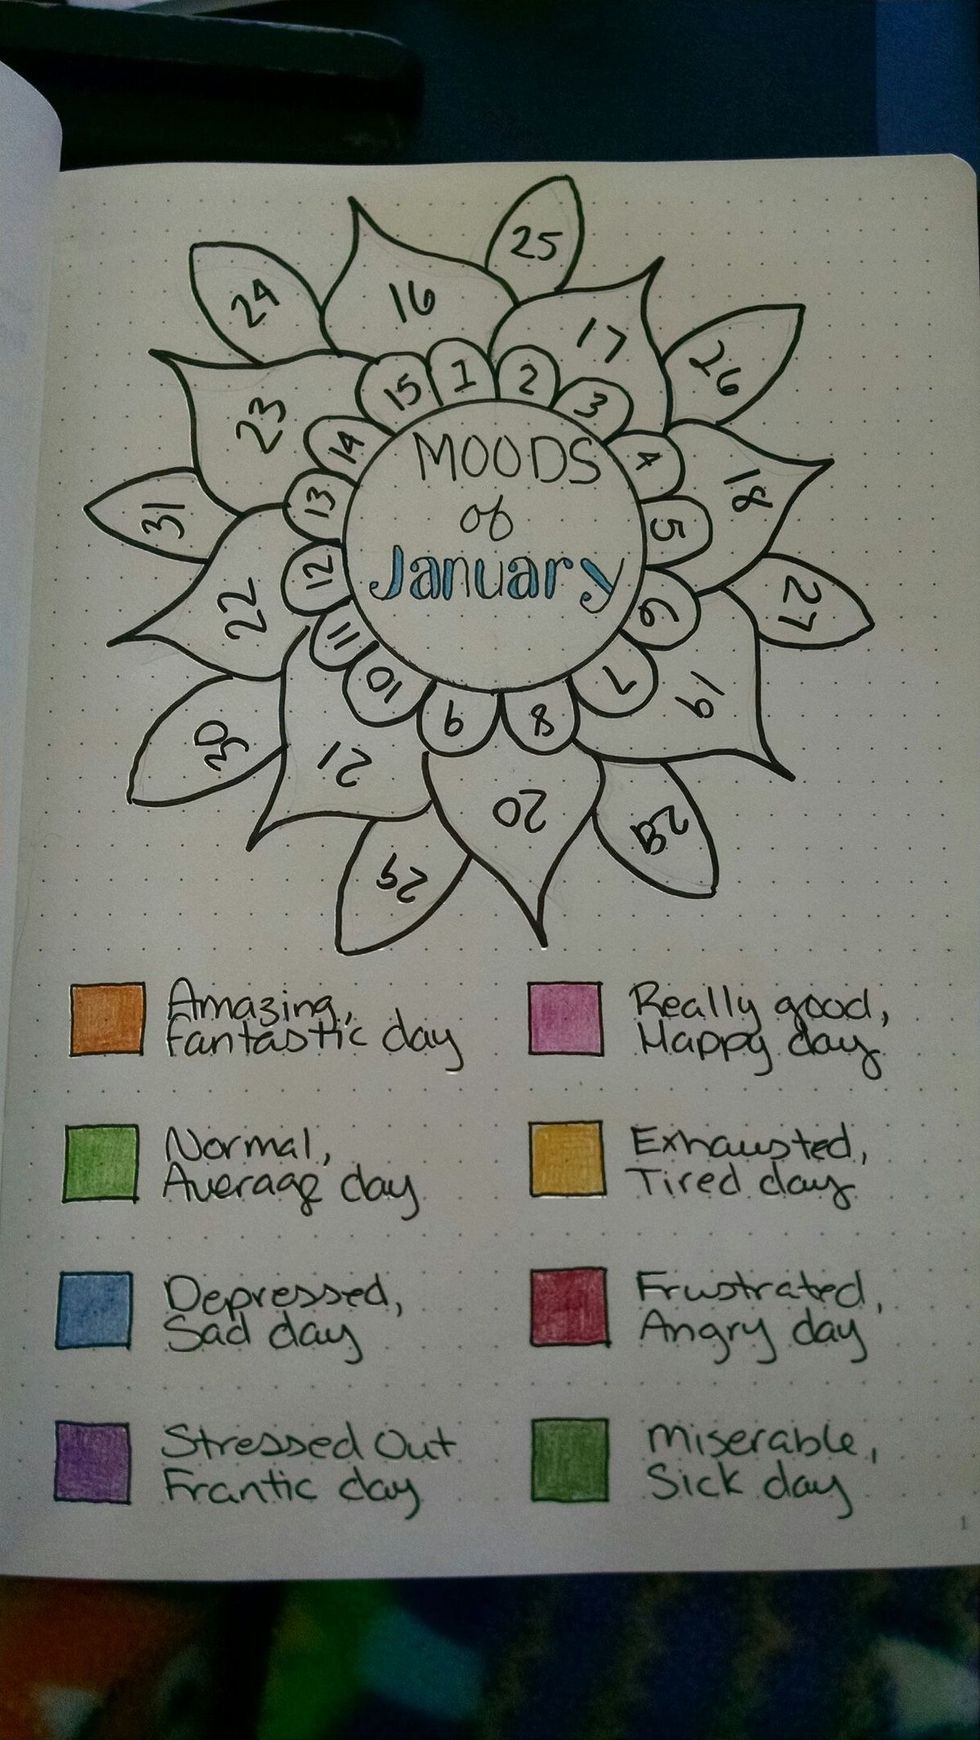 MOODS
of
January
1
2
3
4
5
6
7
8
9
10
11
12
13
14
15
16
17
18
19
20
21
22
23
24
25
26
27
28
29
30
31
Amazing,
Fantastic day
Really good,
Happy day
Normal,
Average day
Exhausted,
Tired day
Depressed,
Sad day
Frustrated,
Angry day
Stressed Out
Frantic day
Miserable,
Sick day
1